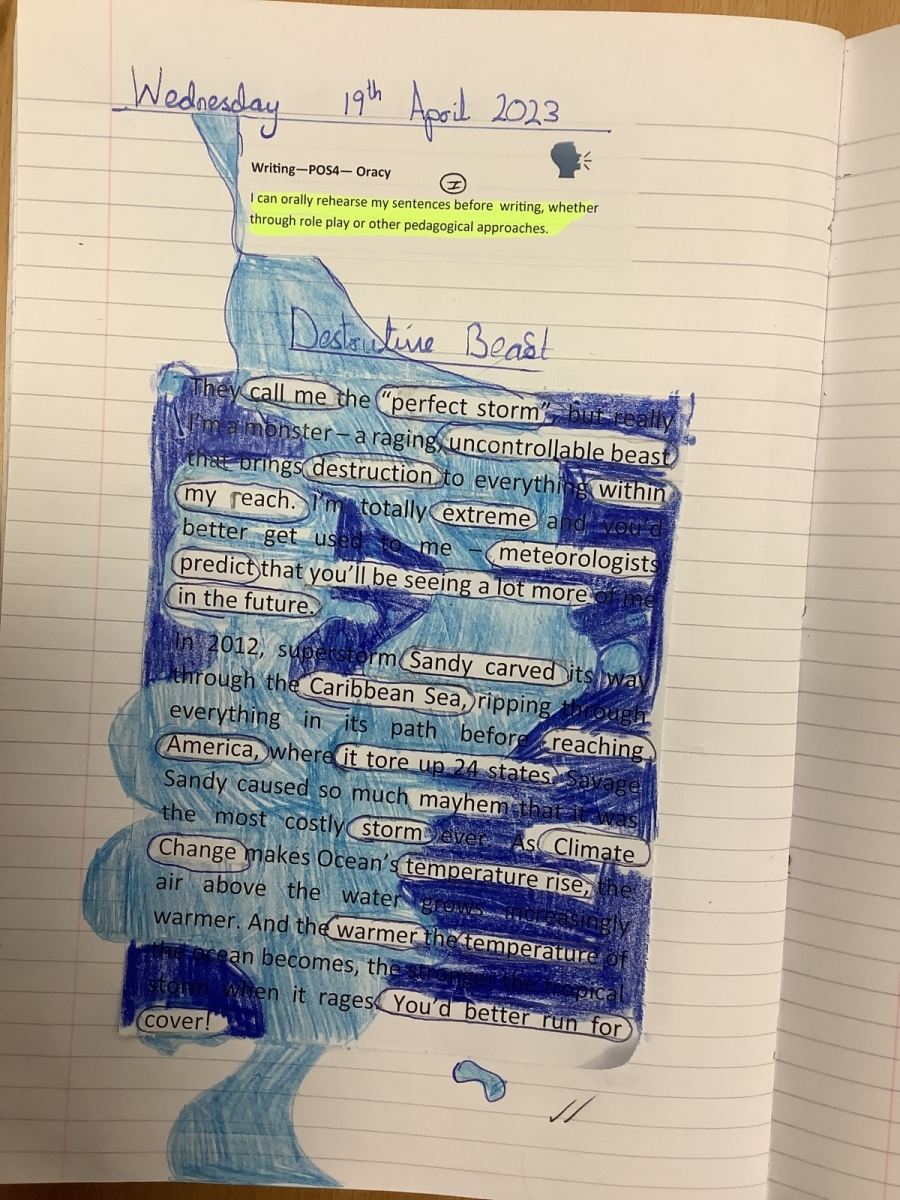 Wednesday 19th April 2023
Writing—POS4— Oracy
I
I can orally rehearse my sentences before writing, whether
through role play or other pedagogical approaches.
Destrutive Beast
They call me the “perfect storm”, but really
I’m a monster – a raging, uncontrollable beast
that brings destruction to everything within
my reach. I’m totally extreme and you’d
better get used to me – meteorologists
predict that you’ll be seeing a lot more of me
in the future.
In 2012, superstorm Sandy carved its way
through the Caribbean Sea, ripping through
everything in its path before reaching
America, where it tore up 24 states. Savage
Sandy caused so much mayhem that it was
the most costly storm ever. As Climate
Change makes Ocean’s temperature rise, the
air above the water grows increasingly
warmer. And the warmer the temperature of
the ocean becomes, the stronger the tropical
storm when it rages. You’d better run for
cover!